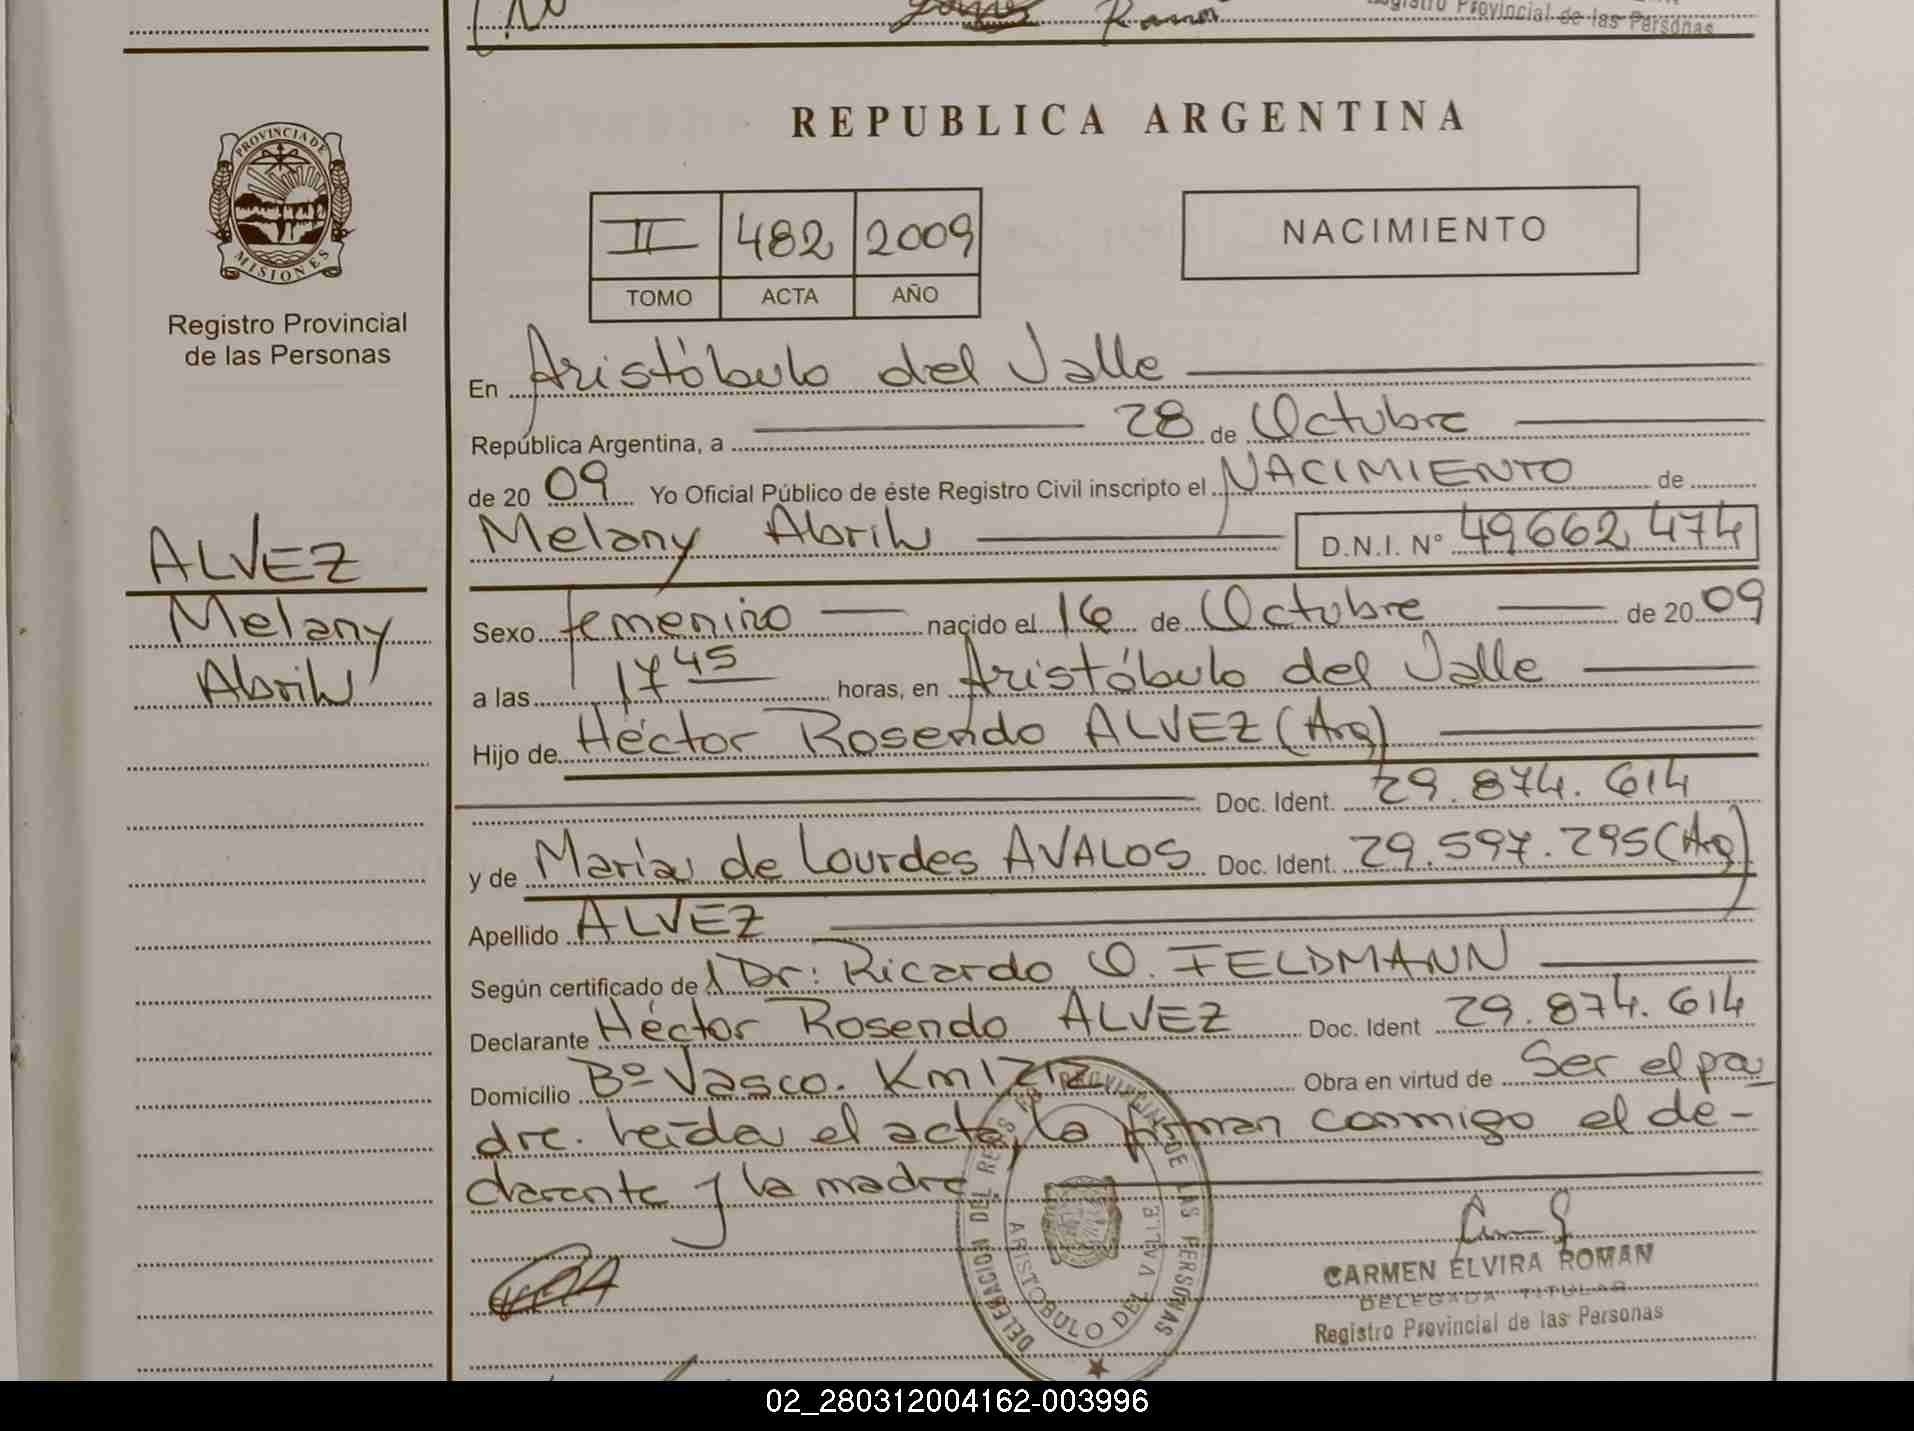 Ramón
Registro Provincial de las Personas
REPUBLICA ARGENTINA
PROVINCIA DE
MISIONES
Registro Provincial
de las Personas
II 482 2009
TOMO ACTA AÑO
NACIMIENTO
En Aristóbulo del Valle
República Argentina, a 28 de Octubre
de 2009 Yo Oficial Público de éste Registro Civil inscripto el NACIMIENTO de
Melany Abril D.N.I. N° 49662474
ALVEZ
Melany
Abril
Sexo femenino nacido el 16 de Octubre de 2009
a las 17 45 horas, en Aristóbulo del Valle
Hijo de Héctor Rosendo ALVEZ (Arg)
Doc. Ident. 29.874.614
y de María de Lourdes AVALOS Doc. Ident. 29.597.295 (Arg)
Apellido ALVEZ
Según certificado de Dr: Ricardo O. FELDMANN
Declarante Héctor Rosendo ALVEZ Doc. Ident 29.874.614
Domicilio Bº Vasco. Km 1212 Obra en virtud de Ser el pa
dre. Leída el acta, la firman conmigo el de-
clarante y la madre
DELEGACION DEL REGISTRO PROVINCIAL DE LAS PERSONAS
ARISTOBULO DEL VALLE
CARMEN ELVIRA ROMAN
DELEGADA TITULAR
Registro Provincial de las Personas
02_280312004162-003996